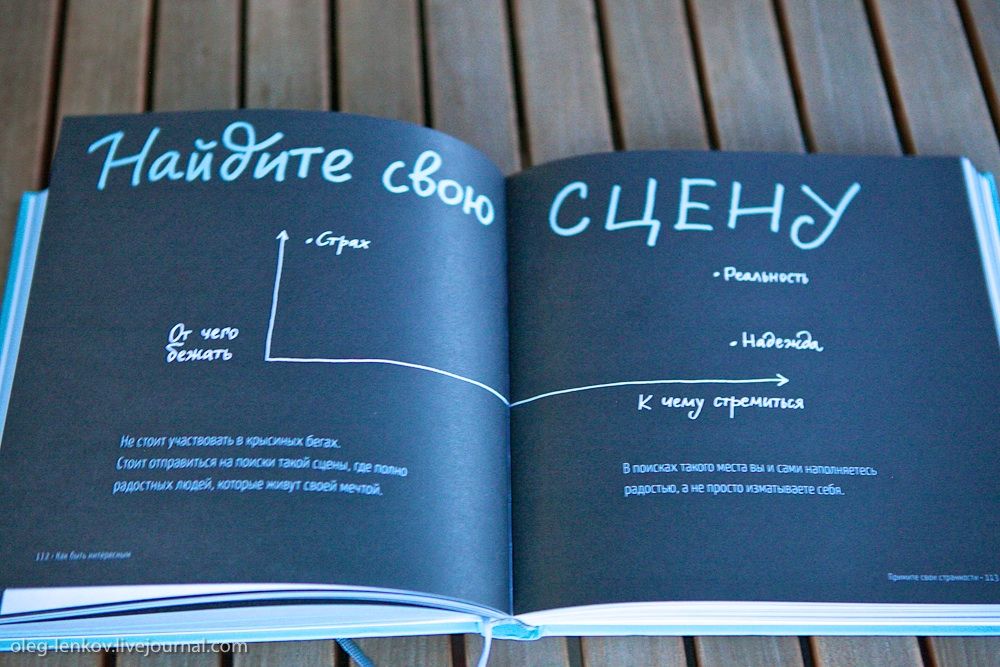 Найдите свою СЦЕНУ
• Страх
• Реальность
От чего
бежать
• Надежда
К чему стремиться
Не стоит участвовать в крысиных бегах.
Стоит отправиться на поиски такой сцены, где полно
радостных людей, которые живут своей мечтой.
В поисках такого места вы и сами наполняетесь
радостью, а не просто изматываете себя.
112 • Как быть интересным
Примите свои странности • 113
oleg-lenkov.livejournal.com